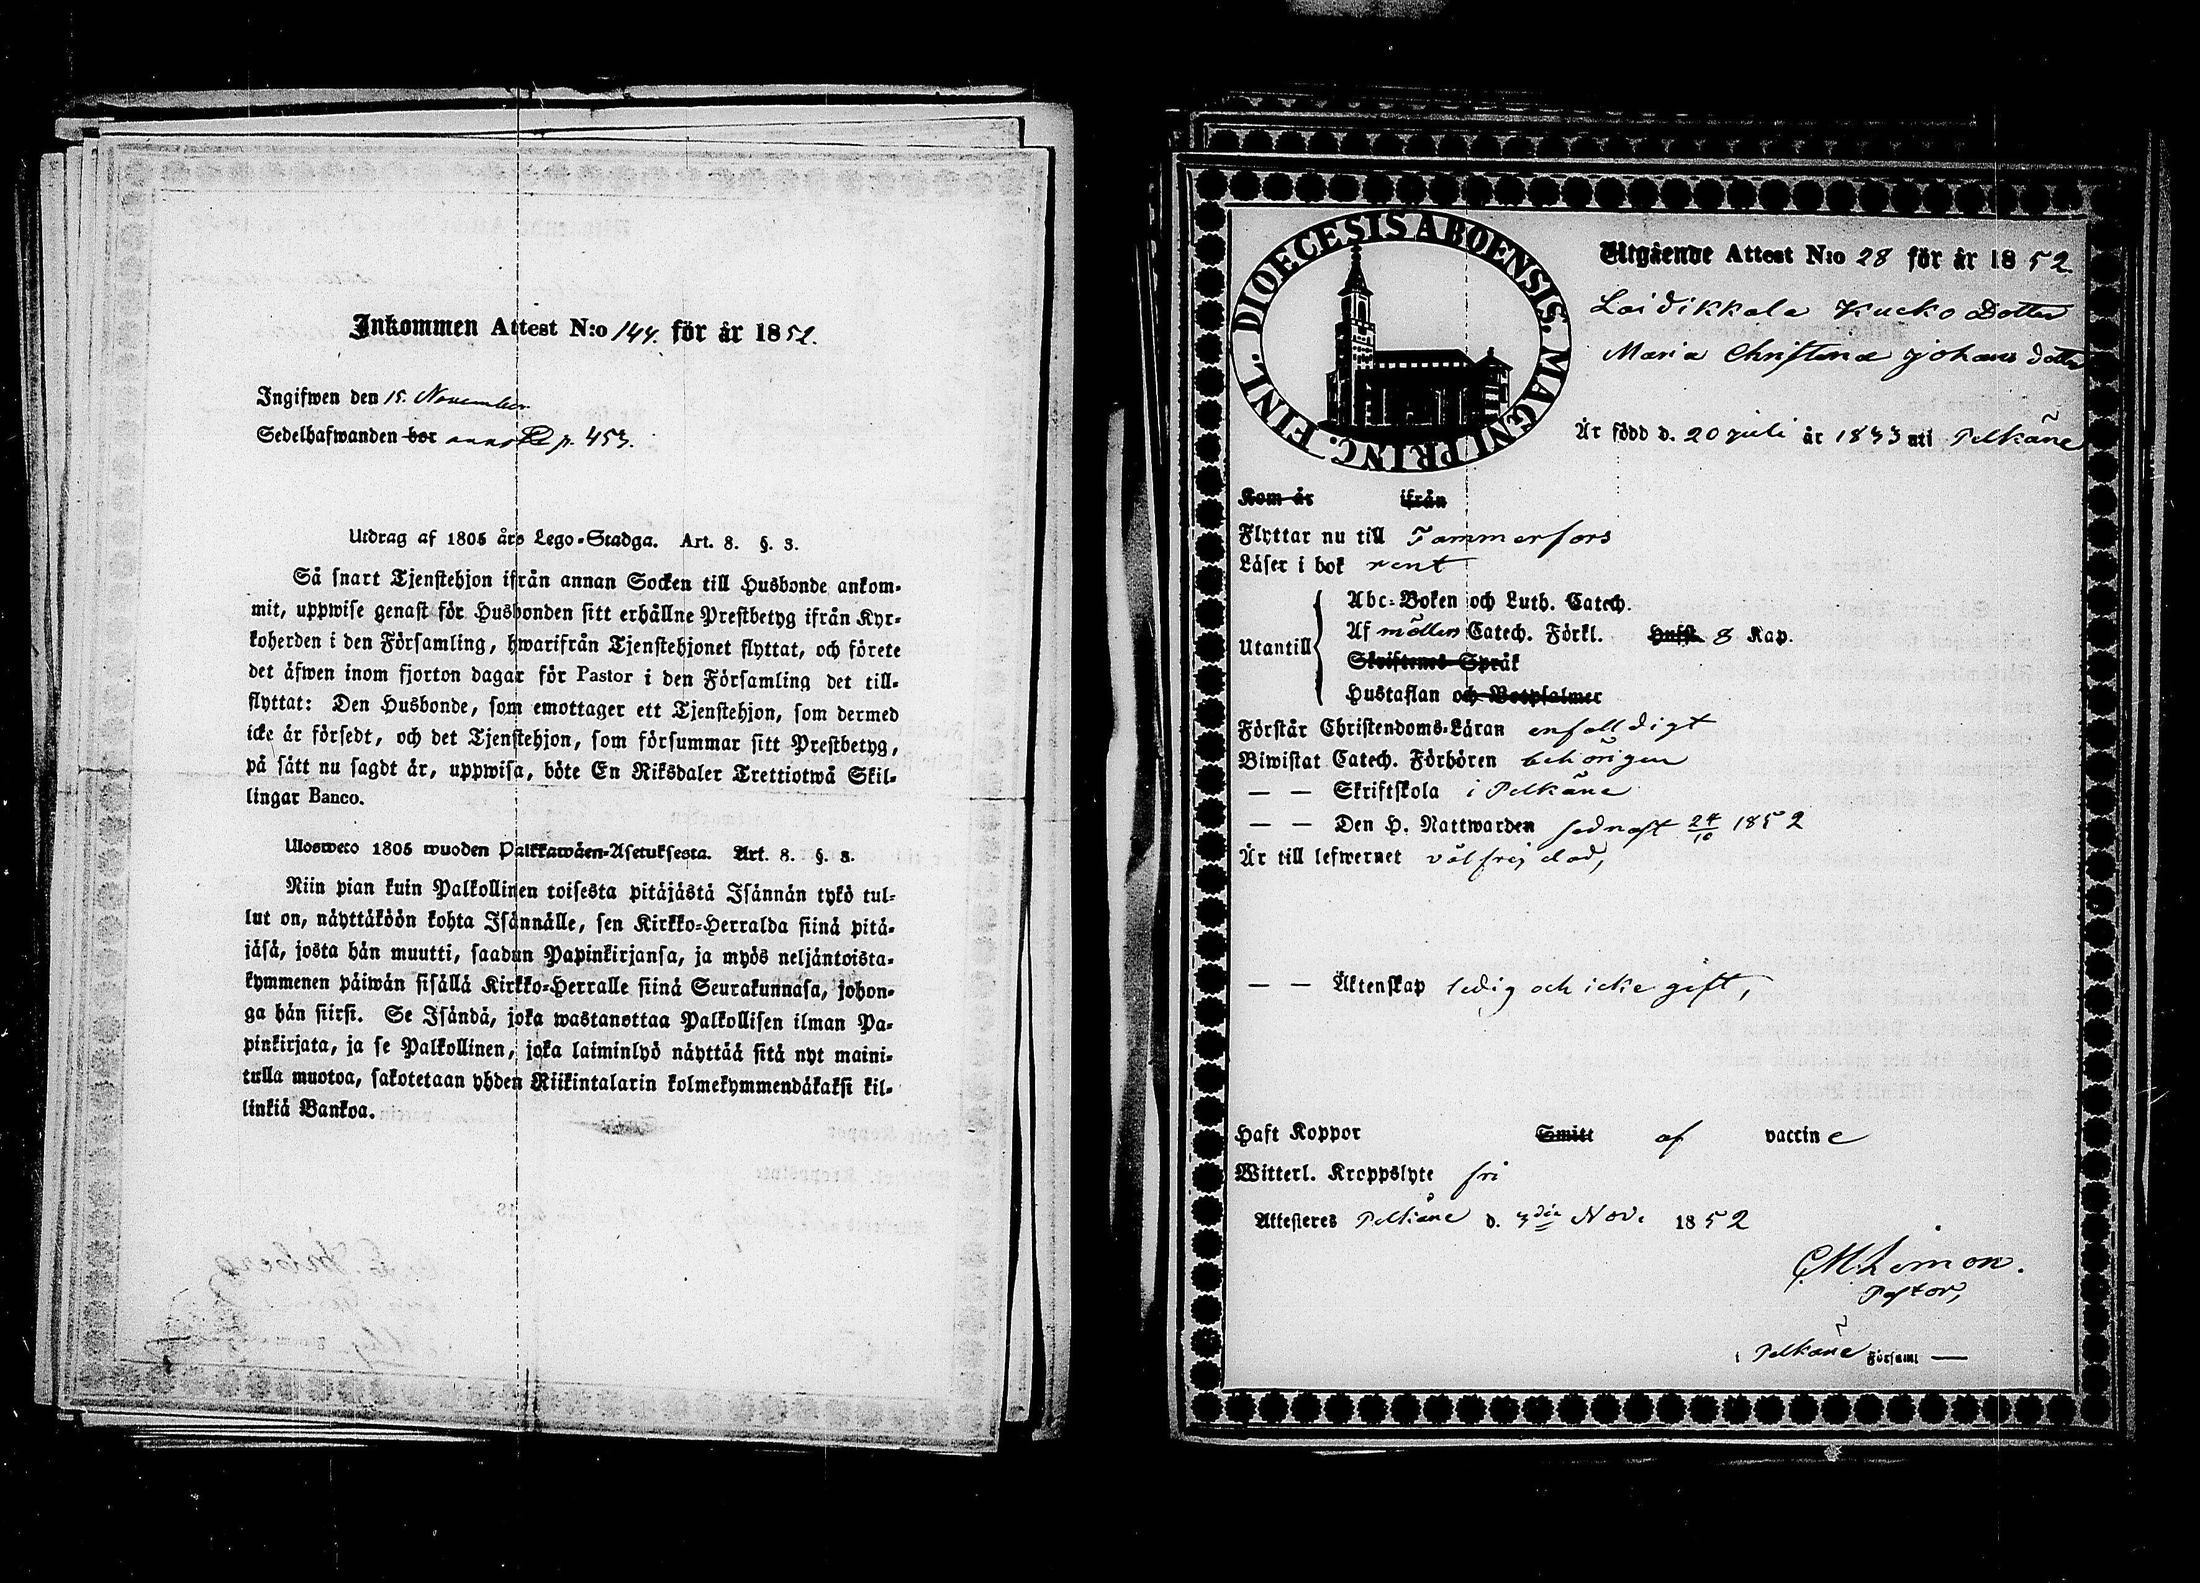 Inkommen Attest N:o 144. för år 1852.
Ingifwen den 15. November
Sedelhafwanden bor p. 453.
Utdrag af 1805 års Lego-Stadga. Art. 8. §. 3.
Så snart Tjenstehjon ifrån annan Socken till Husbonde ankom-
mit, uppwise genast för Husbonden sitt erhållne Prestbetyg ifrån Kyr-
koherden i den Församling, hwarifrån Tjenstehjonet flyttat, och förete
det äfwen inom fjorton dagar för Pastor i den Församling det till-
flyttat: Den Husbonde, som emottager ett Tjenstehjon, som dermed
icke är försedt, och det Tjenstehjon, som försummar sitt Prestbetyg,
på sätt nu sagdt är, uppwisa, böte En Riksdaler Trettiotwå Skil-
lingar Banco.
Ulosweto 1805 wuoden Palkkawäen-Asetuksesta. Art. 8. §. 3.
Niin pian kuin Palkollinen toisesta pitäjästä Isännän tykö tul-
lut on, näyttäköön kohta Isännälle, sen Kirkko-Herralda siinä pitä-
jäsä, josta hän muutti, saadun Papinkirjansa, ja myös neljäntoista-
kymmenen päiwän sisällä Kirkko-Herralle siinä Seurakunnasa, johon-
ga hän siirsi. Se Isändä, joka wastanottaa Palkollisen ilman Pa-
pinkirjata, ja se Palkollinen, joka laiminlyö näyttää sitä nyt maini-
tulla muotoa, sakotetaan yhden Riikintalarin kolmekymmendäkaksi kil-
linkiä Bankoa.
DIOECESIS ABOENSIS. MAGNI PRINC. FINL.
Utgående Attest N:o 28 för år 1852
Laidikkala Kucko Dotter
Maria Christina Johans dotter
Är född d. 20 juli år 1833 uti Pelkäne
Kom år ifrån
Flyttar nu till Tammerfors
Läser i bok rent
Utantill
Abc-Boken och Luth. Catech.
Af möllers Catech. Förkl. Hufst. 8 Kap.
Skriftenes Språk
Hustaflan och Botpsalmer
Förstår Christendoms-Läran enfalldigt
Biwistat Catech. Förhören behörigen
— — Skriftskola i Pelkäne
— — Den H. Nattwarden sednast 24/10 1852
Är till lefwernet välfrejdad,
— — Äktenskap ledig och icke gift,
Haft Koppor Smitt af vaccine
Witterl. Kroppslyte fri
Attesteres Pelkäne d. 3die Nov. 1852
C. M. Limon.
Pastor,
i Pelkäne Församl —